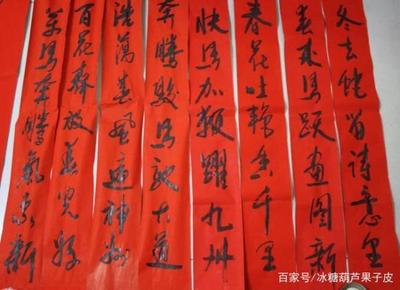 冬去犹留诗意里
春来马跃画图新
春花吐艳香千里
快马加鞭躍九州
奔腾骏马驰大道
浩荡春风遍神州
百花齐放
万马奔腾氣象新
百家号/冰糖葫芦果子皮